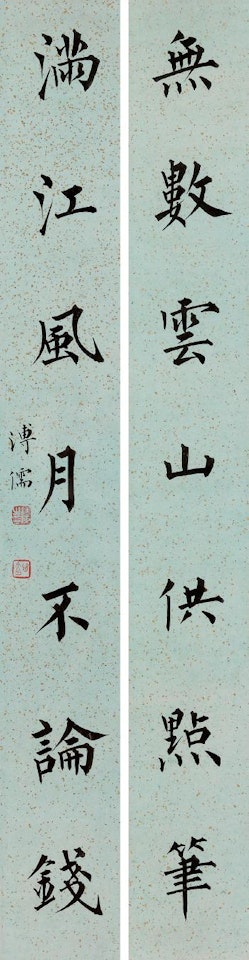 無數雲山供點筆
滿江風月不論錢
溥儒